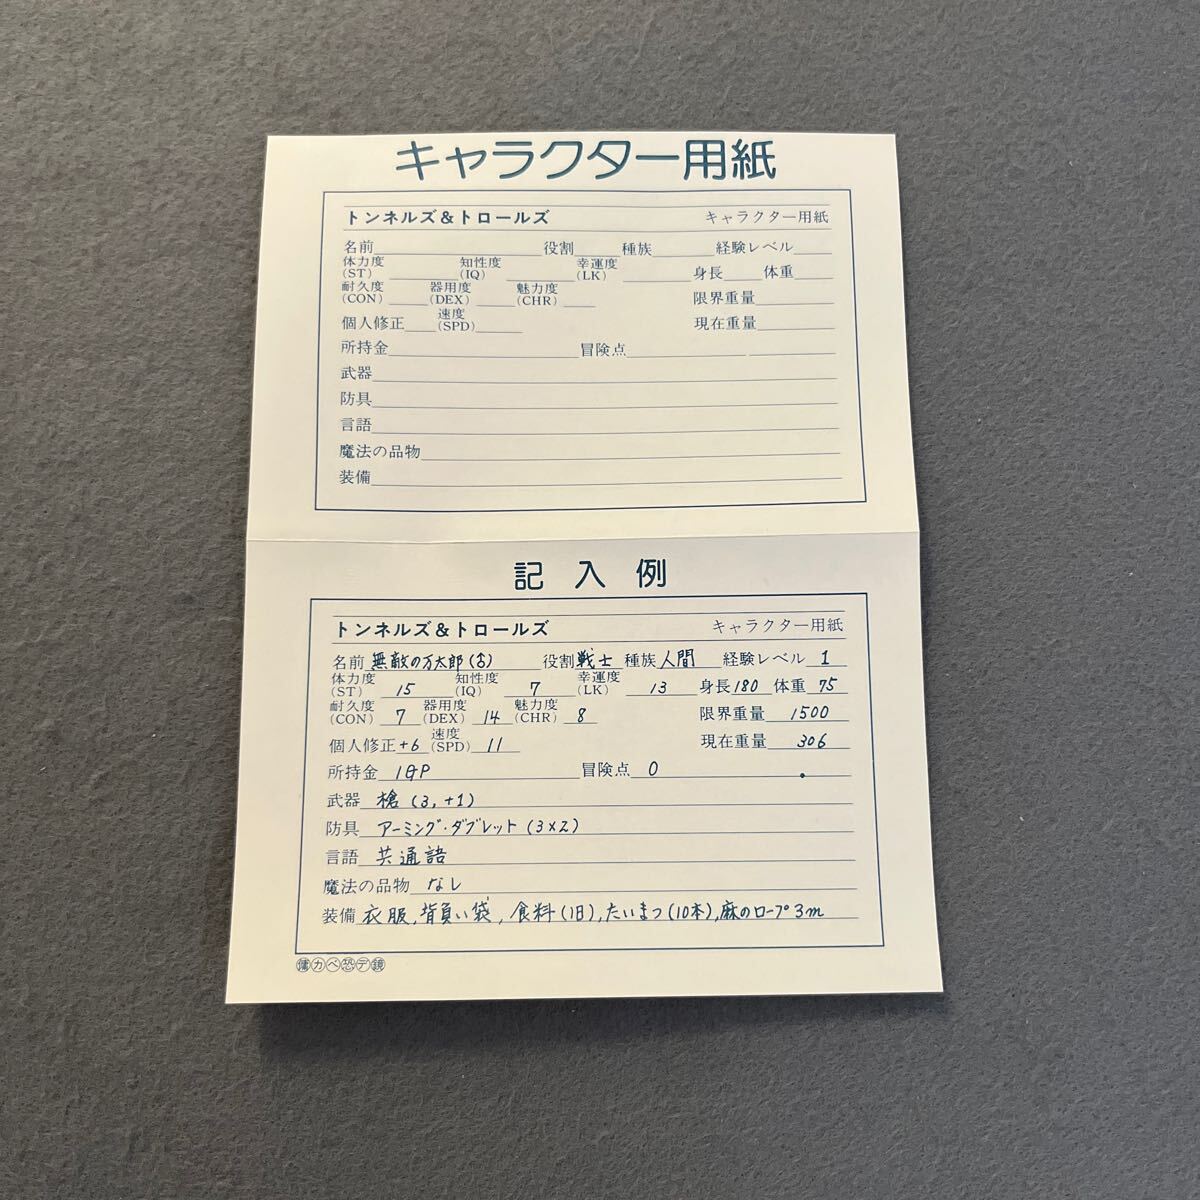 キャラクター用紙
トンネルズ&トロールズ キャラクター用紙
名前 役割 種族 経験レベル
体力度(ST) 知性度(IQ) 幸運度(LK) 身長 体重
耐久度(CON) 器用度(DEX) 魅力度(CHR) 限界重量
個人修正 速度(SPD) 現在重量
所持金 冒険点
武器
防具
言語
魔法の品物
装備
記入例
トンネルズ&トロールズ キャラクター用紙
名前 無敵の万太郎(♂) 役割 戦士 種族 人間 経験レベル 1
体力度(ST) 15 知性度(IQ) 7 幸運度(LK) 13 身長 180 体重 75
耐久度(CON) 7 器用度(DEX) 14 魅力度(CHR) 8 限界重量 1500
個人修正 +6 速度(SPD) 11 現在重量 306
所持金 1GP 冒険点 0
武器 槍(3,+1)
防具 アーミング・ダブレット(3×2)
言語 共通語
魔法の品物 なし
装備 衣服,背負い袋,食料(1日),たいまつ(10本),麻のロープ3m
㊙カベ恐デ鏡